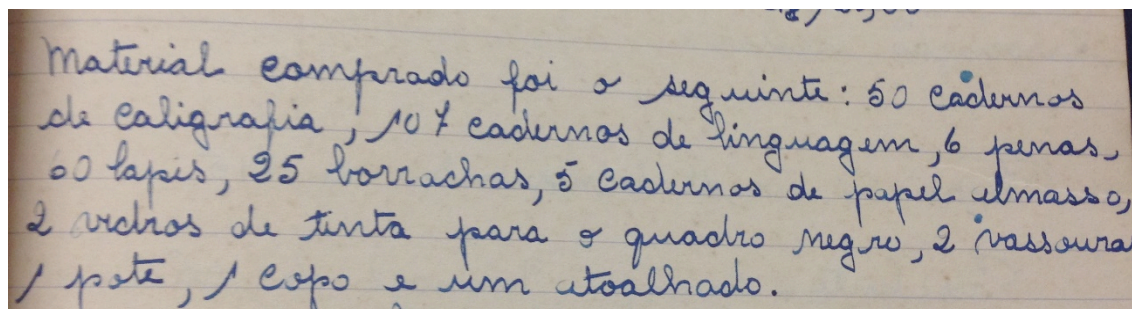 Material comprado foi o seguinte: 50 cadernos
de caligrafia, 107 cadernos de linguagem, 6 penas,
60 lapis, 25 borrachas, 5 cadernos de papel almasso,
2 vidros de tinta para o quadro negro, 2 vassoura
1 pote, 1 copo e um atoalhado.